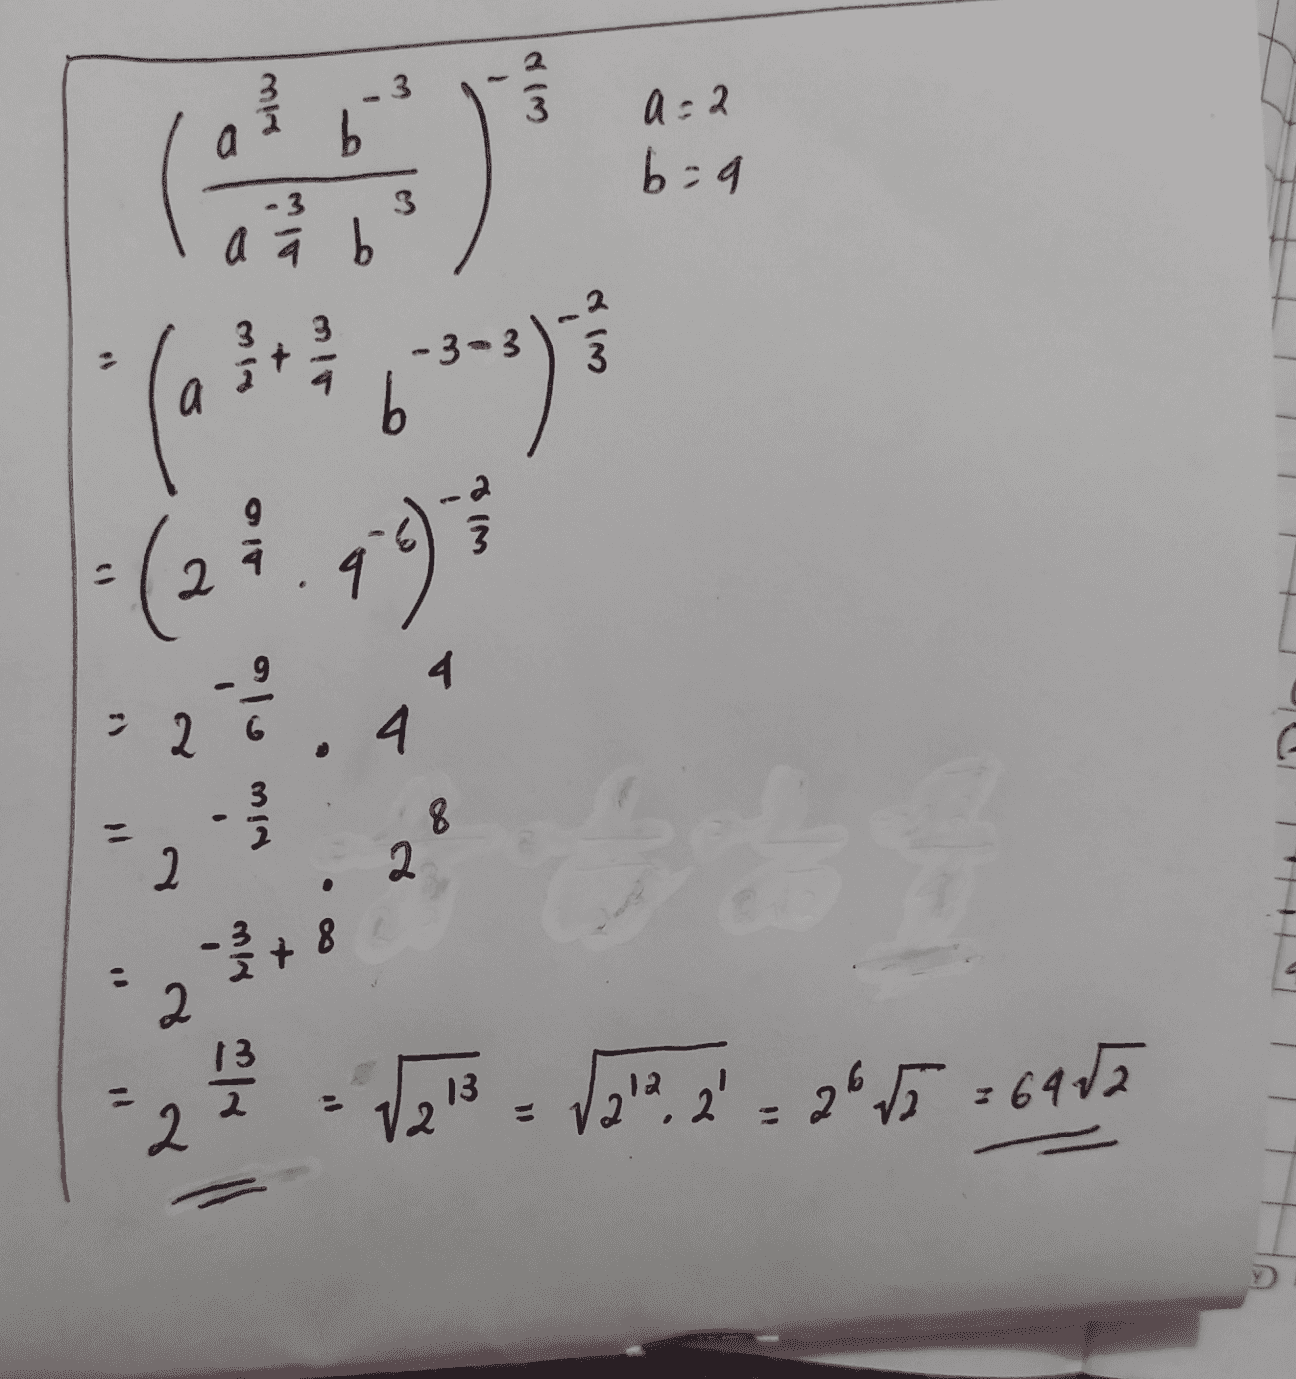 (a^{3/2} b^{-3} / a^{-3/4} b^{3})^{-2/3} a = 2
b = 4
= (a^{3/2 + 3/4} b^{-3-3})^{-2/3}
= (2^{9/4} . 4^{-6})^{-2/3}
= 2^{-9/6} . 4^{4}
= 2^{-3/2} . 2^{8}
= 2^{-3/2 + 8}
= 2^{13/2} = √(2^{13}) = √(2^{12} . 2^{1}) = 2^{6} √2 = 64√2